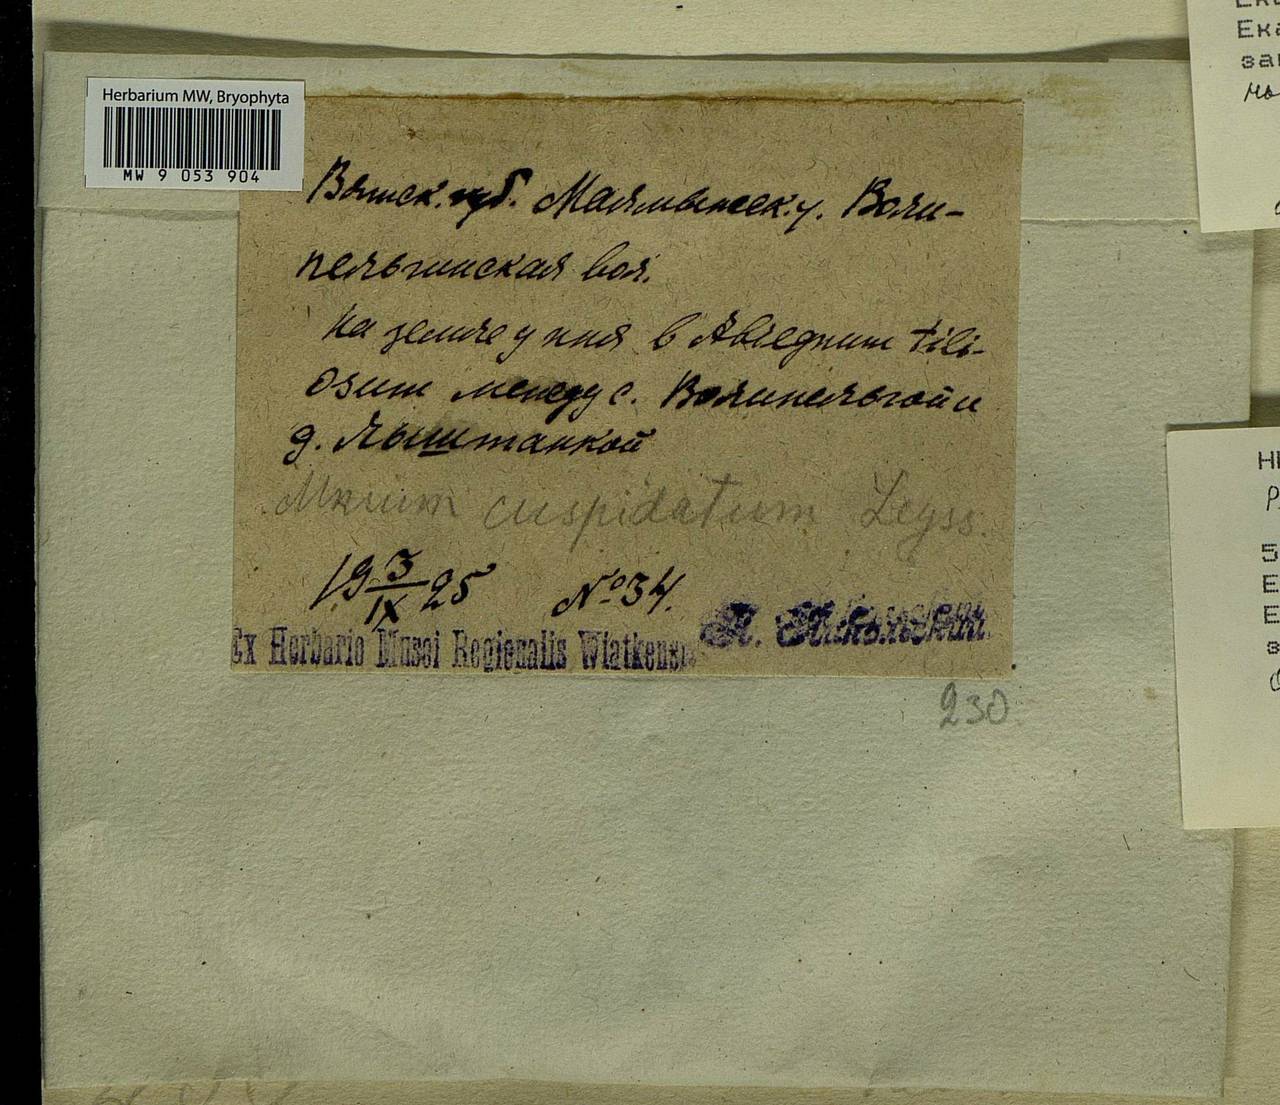 Herbarium MW, Bryophyta
MW 9 053 904
Вятск. губ. Малмыжск. у. Воли-
пельгинская вол.
На земле у пня в Abiegnum tili-
osum между с. Волипельгой и
д. Лыштанкой
Mnium cuspidatum Leyss.
19 3/IX 25 №34.
Ex Herbario Musei Regionalis Wiatkensis
230